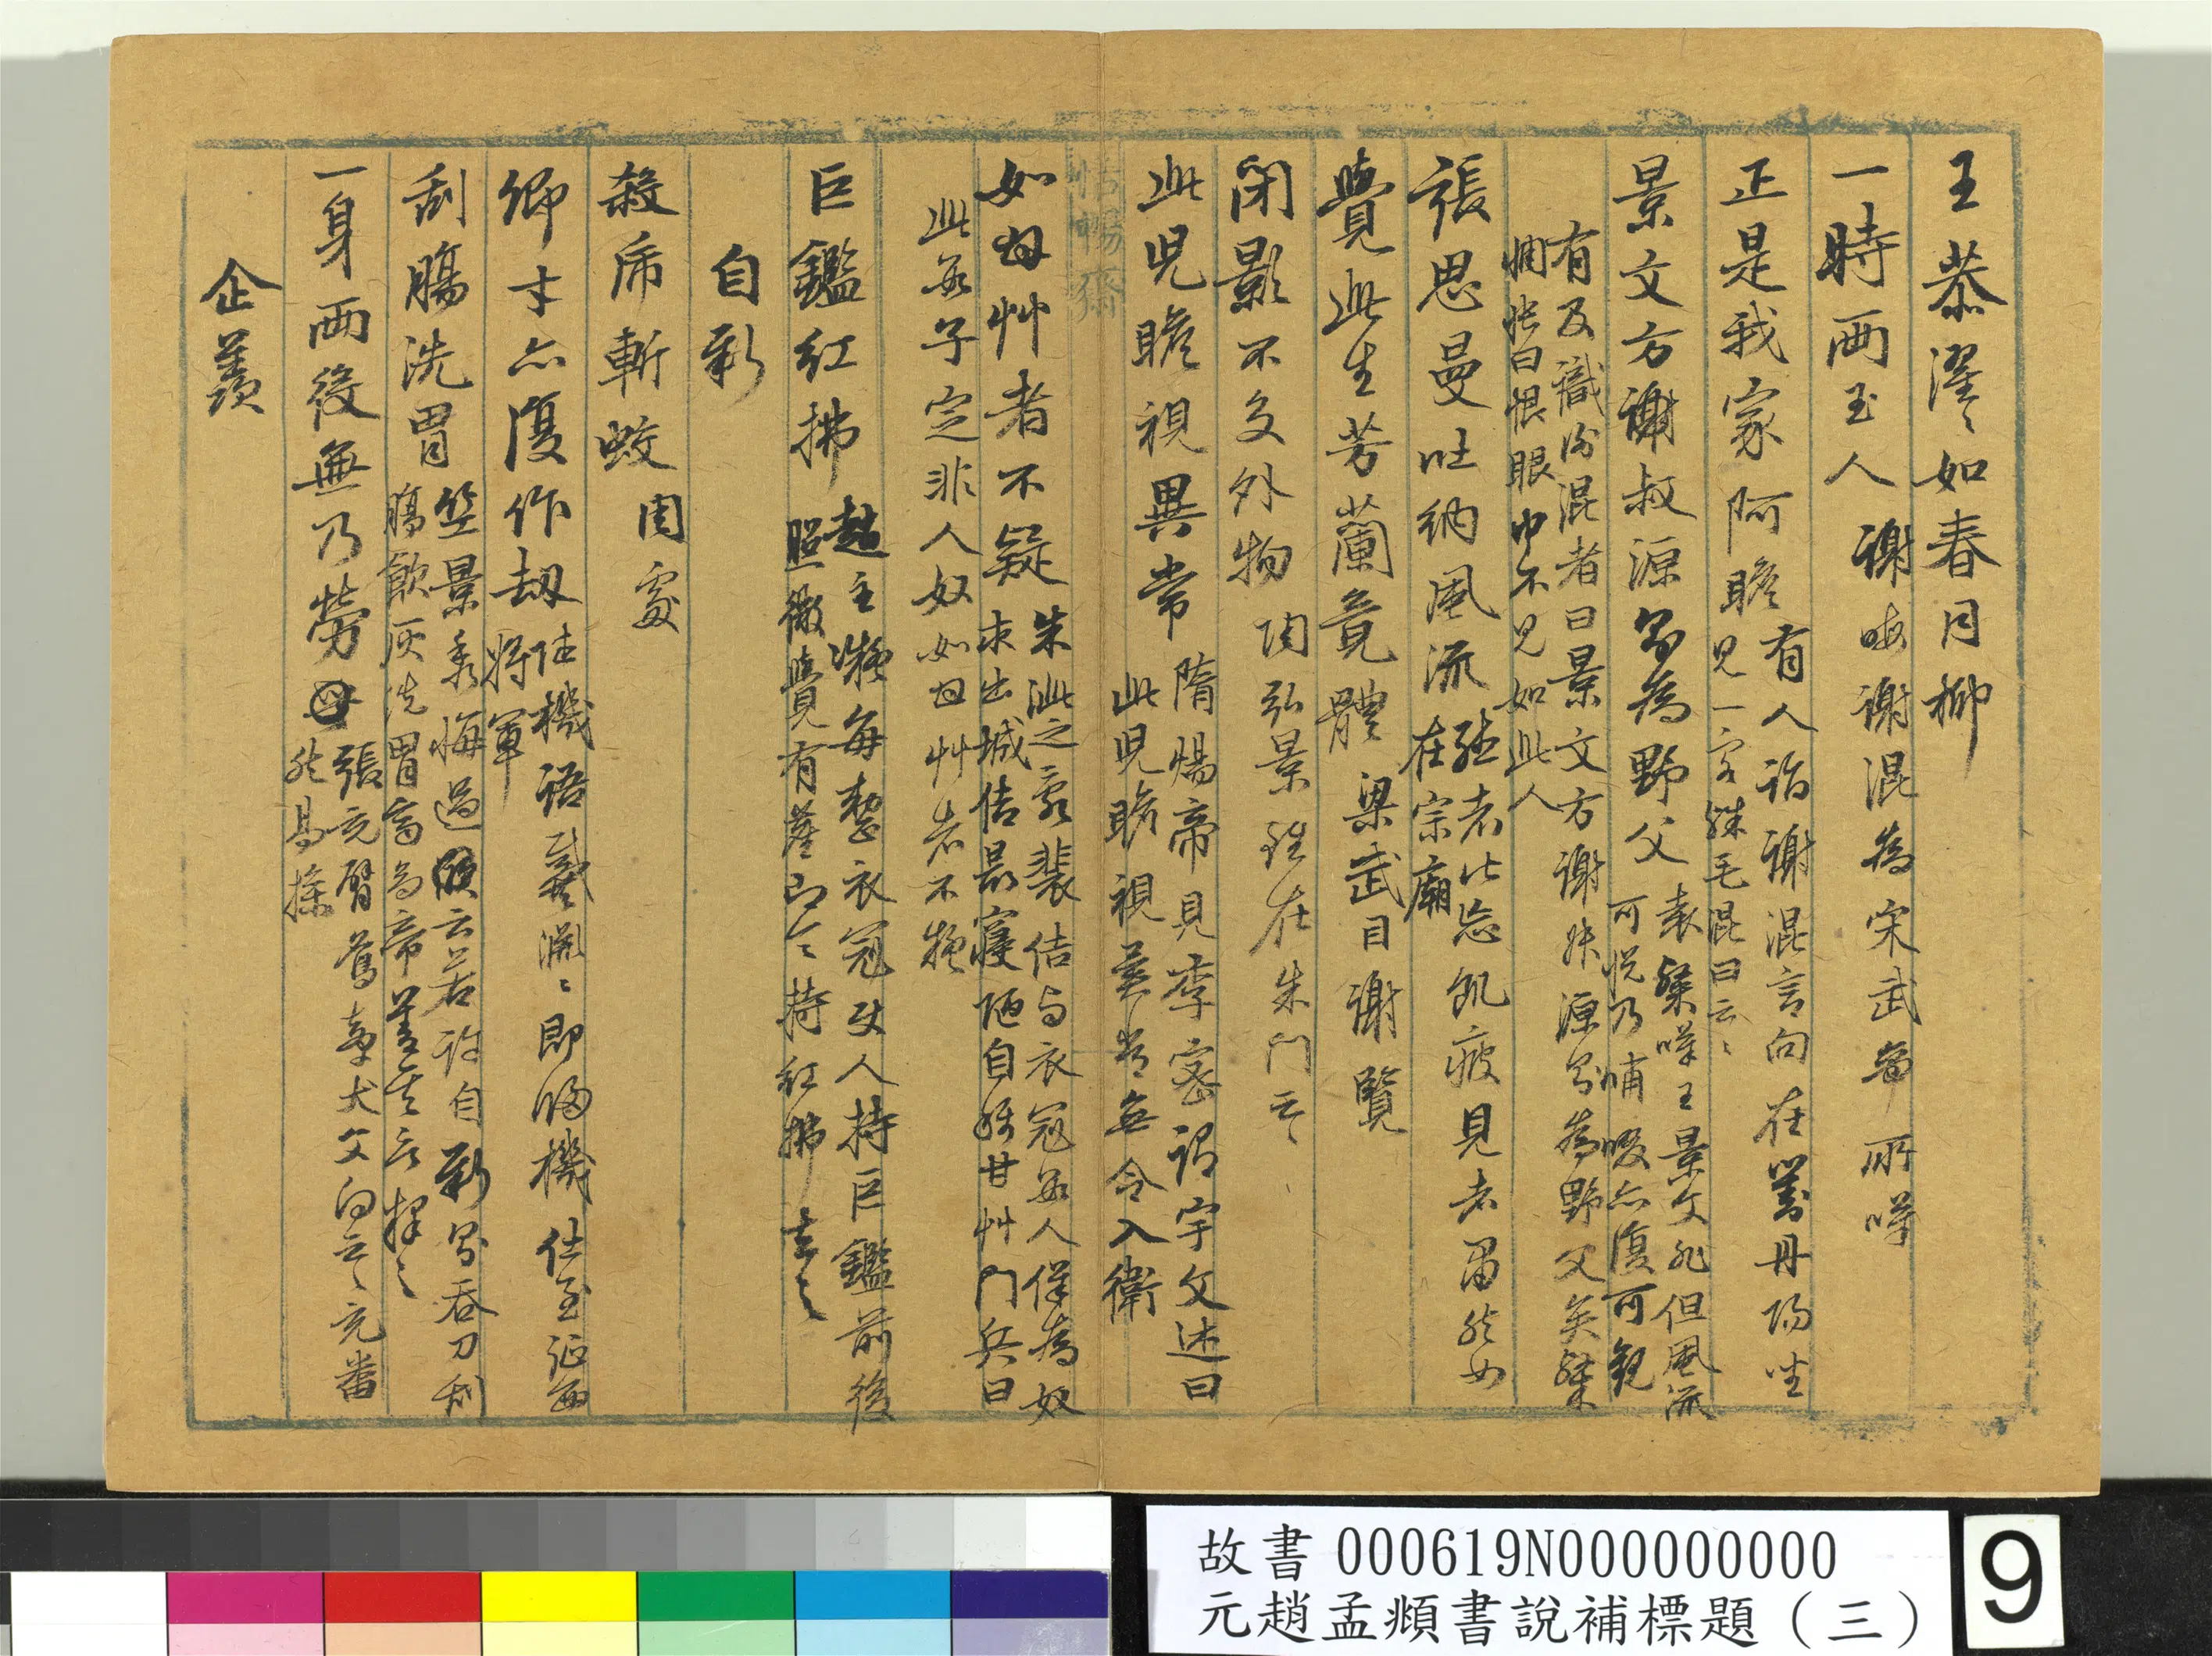 王恭濯〻如春月柳
一時兩玉人 謝晦謝混為宋武帝所嘆
正是我家阿瞻 有人詣謝混言向在丹陽坐
見一客殊毛混曰云〻
景文方謝叔源則為野父 袁粲嘆王景文非但風流
可悅乃哺啜亦復可觀
有及識謝混者曰景文方謝叔源則為野父矣粲
惆悵曰恨眼中不見如此人
張思曼吐納風流 在宗廟
聽者忘飢疲見者肅然如
覺此生芳蘭竟體 梁武目謝覽
閉影不交外物 陶弘景雖在朱門云〻
此兒瞻視異常 隋煬帝見李密謂宇文述曰
此兒瞻視異常無令入衛
悟暢齋
如母艸者不疑 朱泚之亂裴佶與衣冠數人佯為奴
求出城佶最寢陋自稱甘艸門兵曰
此數子定非人奴如甘艸者不疑
巨鑑紅拂 趙主凝每整衣冠使人持巨鑑前後
照徹覺有塵即令持紅拂去之
自新
殺虎斬蛟 周處
卿才亦復作劫 陸機語戴淵〻即歸機仕至征西
將軍
刮腸洗胃 竺景秀悔過曰若許自新則吞刀刮
腸飲灰洗胃高帝善其言釋之
一身兩役無乃勞 張充臂鷹牽犬父曰云〻充番
然易操
企羨
故書 000619N000000000
元趙孟頫書說補標題（三）
9